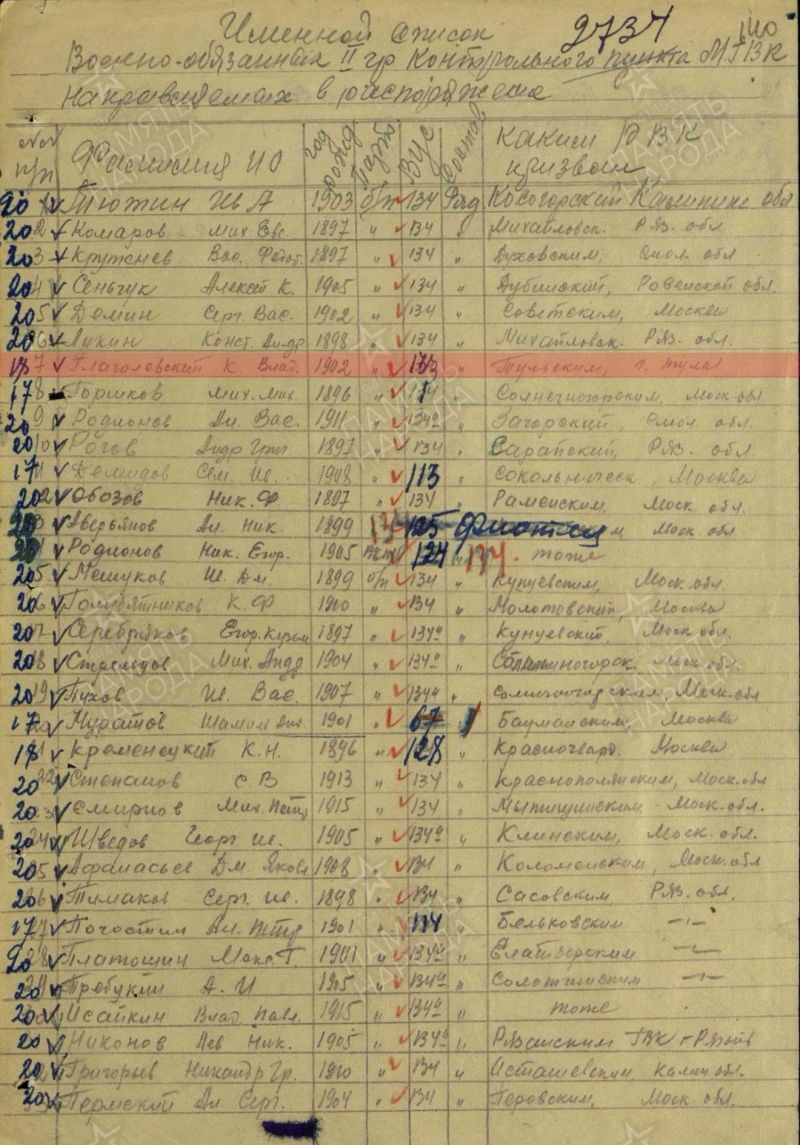 Именной список 2734 140
Военно-обязанных II гр Контрольного пункта МГВК
направляемых в распоряжение
№№ п/п Фамилия ИО год рожд Парт. ВУС Состав каким РВК призван
20 1 Тюжин Ив А 1903 б/п 134 Ряд Косогорский Калинине обл
20 2 Комаров Мих Евс. 1897 " 134 " Михайловск. Ряз. обл.
20 3 Кружнев Вас. Федот. 1897 " 134 " Духовским, Смол. обл.
20 4 Сеньчук Алексей К. 1905 " 134 " Дубинский, Ровенской обл.
20 5 Демин Серг. Вас. 1902 " 134 " Советским, Москва
20 6 Лукин Конст. Андр 1898 " 134 " Михайловск. Ряз. обл.
18 7 Глаголевский К. Влад. 1902 " " Тульским, г. Тула
17 8 Горшков Мих. Мих. 1896 " " Солнечногорским, Моск. обл
20 9 Родионов Ал. Вас. 1911 " 134а " Загорский, Смол. обл.
20 10 Рогов Андр Григ 1897 " 134 " Сарапский, Ряз. обл.
17 Демидов Сем. Ив. 1908 " 113 " Сокольническ, Москва
20 2 Обозов Ник. Ф 1897 " 134 " Раменским, Моск обл.
20 Аверьянов Ал. Ник. 1899 134 125 Моск. обл
20 Родионов Ник. Егор. 1905 124 " 134. тоже
20 5 Мешуков Ив. Дм. 1899 б/п 134 " Кунцевским, Моск. обл.
20 6 Голубятников К. Ф 1900 " 134 " Молотовский, Москва
20 7 Серебряков Егор. Кузьм 1897 " 134а " Кунцевский, Моск. обл.
20 18 Стрельцов Мих. Андр 1904 " 134а " Моск. обл.
20 19 Пухов Ив. Вас. 1907 " 134а " Солнечногорским, Моск. обл
17 20 Муратов Шамил 1901 " 67 " Бауманским, Москва
18 21 Кременецкий К. Н. 1896 " 128 " Красногвард. Москва
20 22 Степанов С. В 1913 " 134 " Краснополянским, Моск. обл
20 23 Смирнов Мих. Петр 1915 " 134 " Мытищинским Моск. обл.
20 24 Шведов Георг Ив. 1905 " 134а " Клинским, Моск. обл.
20 25 Афанасьев Дм Яков 1908 " 134 " Коломенским, Моск. обл
20 26 Тимаков Серг. Ив. 1898 " 134 " Сасовским, Ряз. обл.
17 27 Погостин Ал. Петр 1901 134 " Бельковским —"—
20 28 Платошин Макс. Г. 1901 " 134а " Елатьмским —"—
20 Требухин А. И 1905 " 134а " Солотчинским —"—
20 Исайкин Влад. Павл. 1915 " 134а " тоже
20 Никонов Лев Ник. 1905 " 134а " Рязанским ГВК г Рязань
20 Григорьев Никандр Гр. 1900 " 134 " Осташевским, Калин обл.
20 Пермский Ал Серг. 1904 " 134 " Перовским, Моск. обл.
ПАМЯТЬ НАРОДА